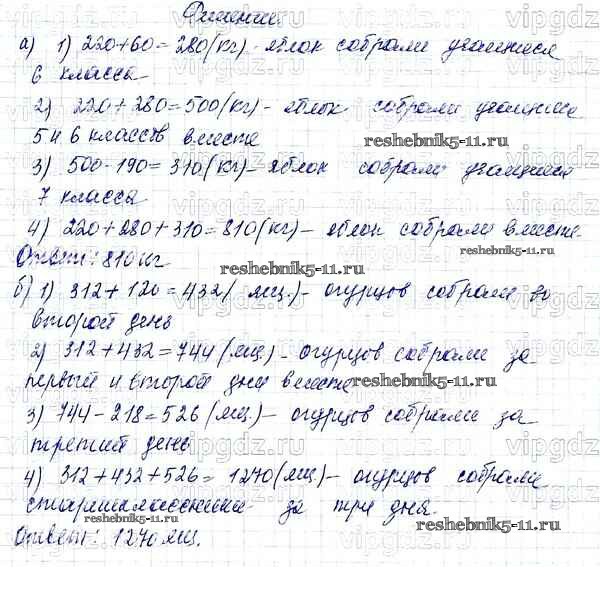 Решение
а) 1) 220+60=280(кг) - яблок собрали учащиеся
6 класса
2) 220+280=500(кг) - яблок собрали учащиеся
5 и 6 классов вместе
reshebnik5-11.ru
3) 500-190=310(кг) - яблок собрали учащиеся
7 класса
4) 220+280+310=810(кг) - яблок собрали вместе.
Ответ: 810 кг
reshebnik5-11.ru
б) 1) 312+120=432(ящ.) - огурцов собрали во
второй день
2) 312+432=744(ящ.) - огурцов собрали за
первый и второй дни вместе
reshebnik5-11.ru
3) 744-218=526(ящ.) - огурцов собрали за
третий день
4) 312+432+526=1270(ящ.) - огурцов собрали
старшеклассники за три дня.
reshebnik5-11.ru
Ответ: 1270 ящ.
vipgdz.ru